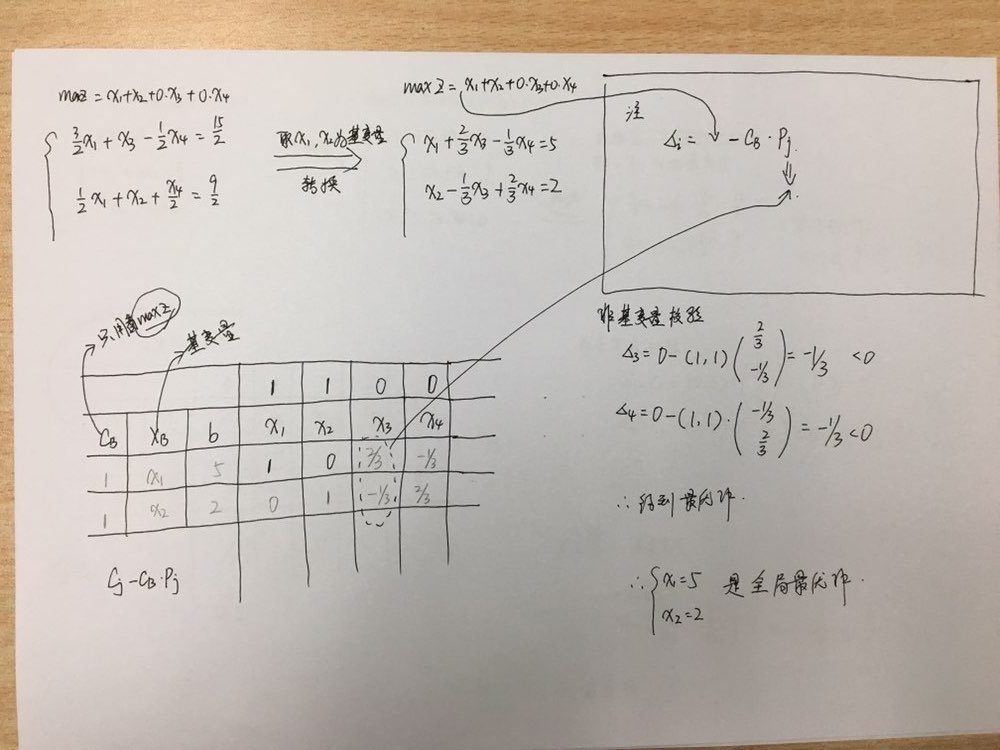 max z = x₁+x₂+0·x₃+0·x₄
3/2 x₁ + x₃ - 1/2 x₄ = 15/2
1/2 x₁ + x₂ + x₄/2 = 9/2
取x₁, x₂为基变量
转换
max z = x₁+x₂+0·x₃+0·x₄
x₁ + 2/3 x₃ - 1/3 x₄ = 5
x₂ - 1/3 x₃ + 2/3 x₄ = 2
注
Δi = - C_B · Pj.
只用看max z
基变量
1 1 0 0
C_B X_B b x₁ x₂ x₃ x₄
1 x₁ 5 1 0 2/3 -1/3
1 x₂ 2 0 1 -1/3 2/3
Cj - C_B · Pj
非基变量检验
Δ₃ = 0 - (1, 1) (2/3 -1/3) = -1/3 < 0
Δ₄ = 0 - (1, 1) · (-1/3 2/3) = -1/3 < 0
∴ 得到最优解.
∴ { x₁ = 5 是全局最优解.
x₂ = 2